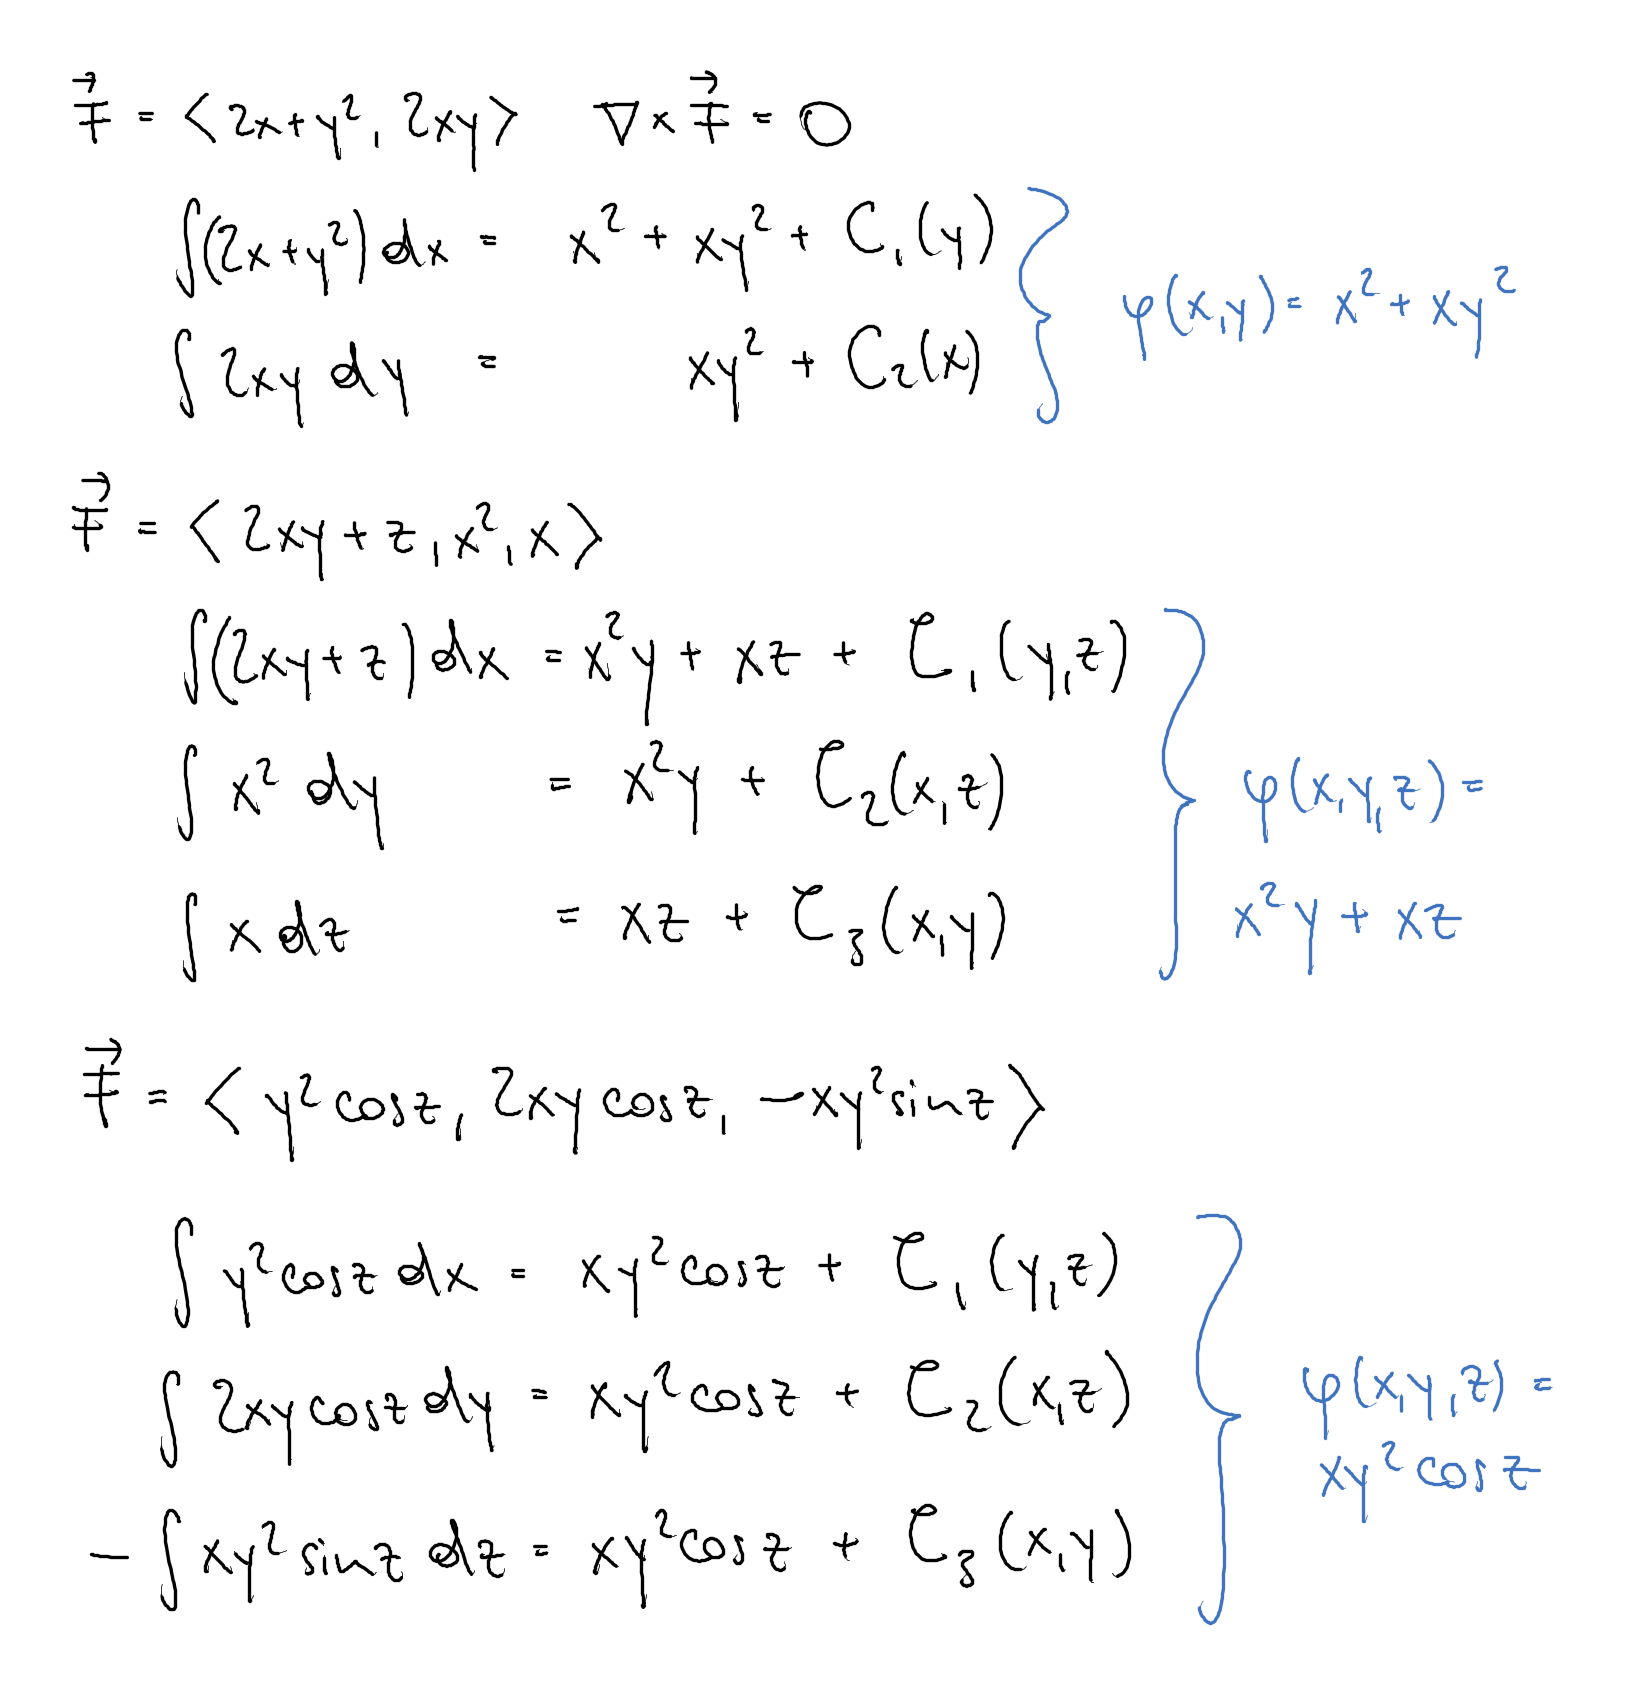 F⃗ = ⟨2x+y², 2xy⟩ ∇×F⃗ = 0
∫(2x+y²)dx = x² + xy² + C₁(y)
φ(x,y) = x² + xy²
∫2xy dy = xy² + C₂(x)
F⃗ = ⟨2xy+z, x², x⟩
∫(2xy+z)dx = x²y + xz + C₁(y,z)
∫x² dy = x²y + C₂(x,z)
φ(x,y,z) =
∫x dz = xz + C₃(x,y)
x²y + xz
F⃗ = ⟨y²cosz, 2xycosz, -xy²sinz⟩
∫y²cosz dx = xy²cosz + C₁(y,z)
∫2xycosz dy = xy²cosz + C₂(x,z)
φ(x,y,z) =
xy²cosz
-∫xy²sinz dz = xy²cosz + C₃(x,y)